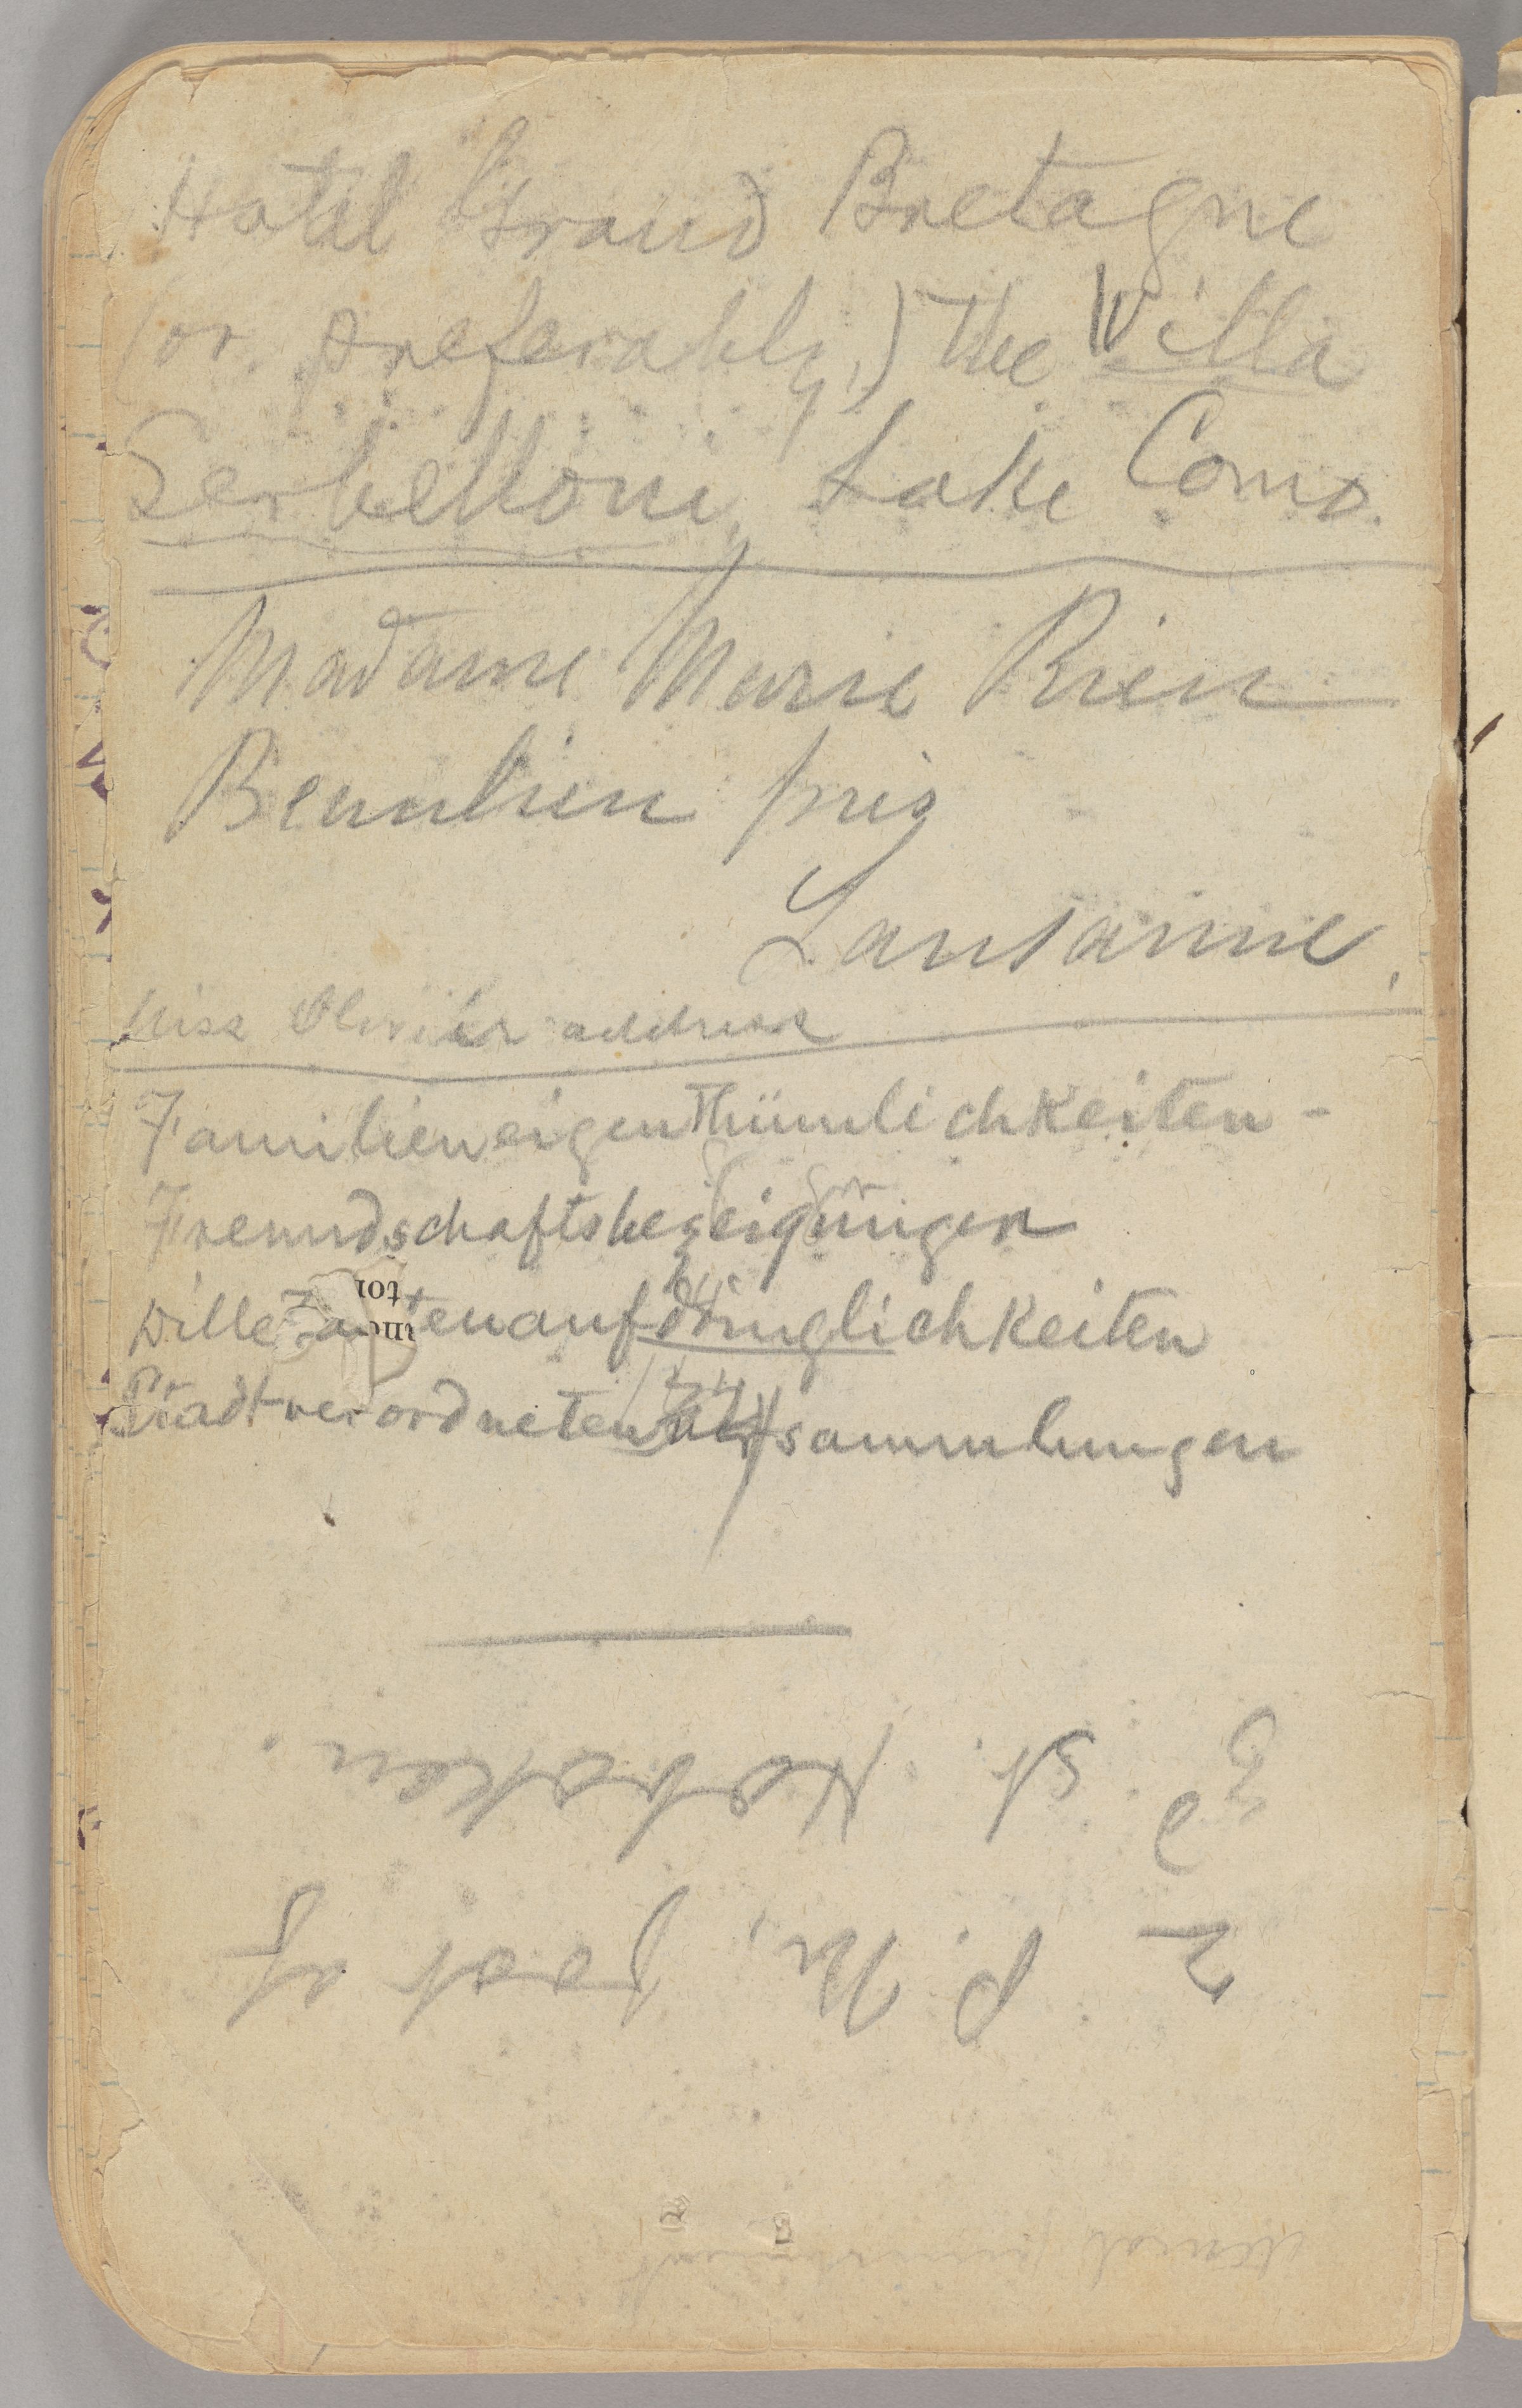 Hotel Grand Bretagne
(or, preferably,) the Villa
Serbelloni, Lake Como.
Madame Marie Rien
Beaulieu près
Lausanne.
Miss Olivier address
Familieneigenthümlichkeiten-
Freundschaftsbezeigungen
Dilletantenaufdringlichkeiten
Stadtverordnetenversammlungen
2 P.M. foot of
3d St. Hoboken.
tor